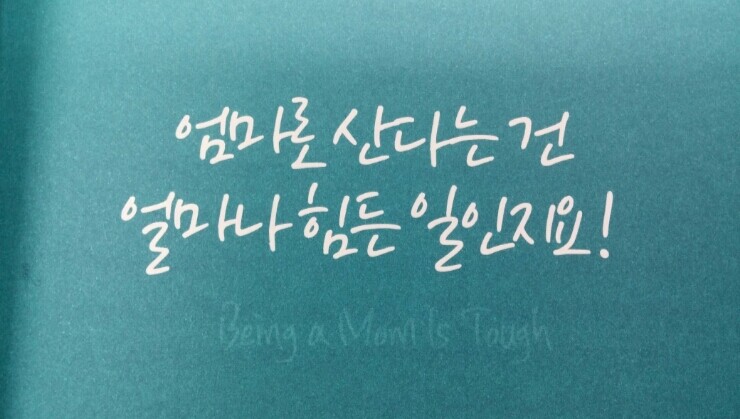 엄마로 산다는 건
얼마나 힘든 일인지요!
Being a Mom Is Tough